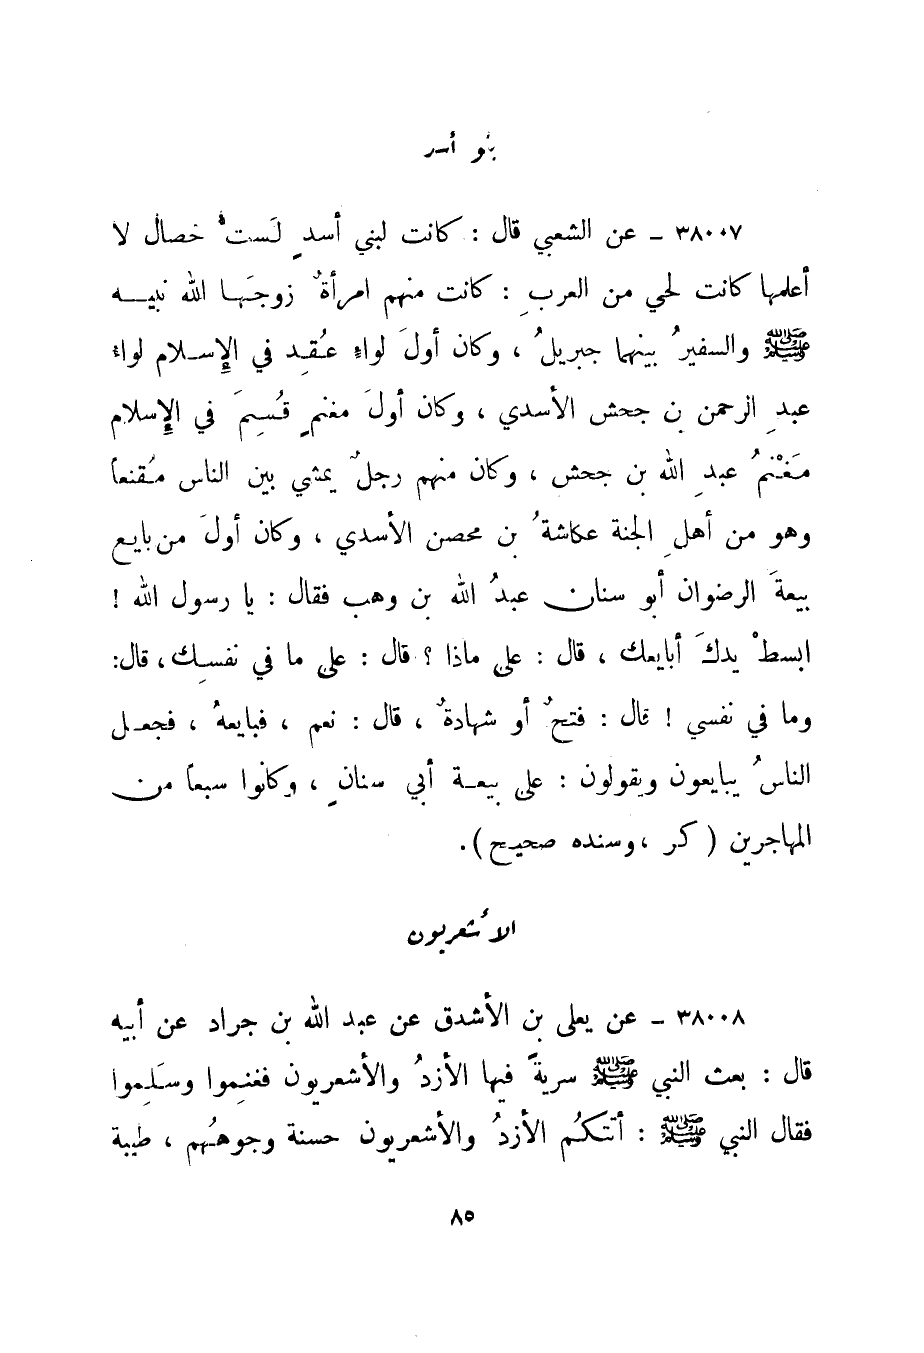 بنو أسد
٣٨٠٠٧ ـ عن الشعبي قال : كانت لبني أسدٍ لَستُّ خصال لا
أعلمها كانت لحي من العربِ : كانت منهم امرأةٌ زوجَها الله نبيه
ﷺ والسفيرُ بينهما جبريلُ ، وكان أولَ لواءٍ عُقِد في الإسلام لواءُ
عبدِ الرحمن بن جحش الأسدي ، وكان أولَ مغنمٍ قُسِمَ في الإسلام
مَغْنمُ عبدِ الله بن جحش ، وكان منهم رجلٌ يمشي بين الناس مُقنعاً
وهو من أهلِ الجنة عكاشةُ بن محصن الأسدي ، وكان أولَ من بايع
بيعةَ الرضوان أبو سنان عبدُ الله بن وهب فقال : يا رسول الله !
ابسطْ يدكَ أبايعك ، قال : على ماذا ؟ قال : على ما في نفسِك ، قال :
وما في نفسي ! قال : فتحٌ أو شهادةٌ ، قال : نعم ، فبايعهُ ، فجعل
الناسُ يبايعون ويقولون : على بيعة أبي سنانٍ ، وكانوا سبعاً من
المهاجرين ( كر ، وسنده صحيح ) .
الأشعريون
٣٨٠٠٨ ـ عن يعلى بن الأشدق عن عبد الله بن جراد عن أبيه
قال : بعث النبي ﷺ سريةً فيها الأزدُ والأشعريون فغنِموا وسَلِموا
فقال النبي ﷺ : أتتكُم الأزدُ والأشعريون حسنة وجوهُهم ، طيبة
٨٥